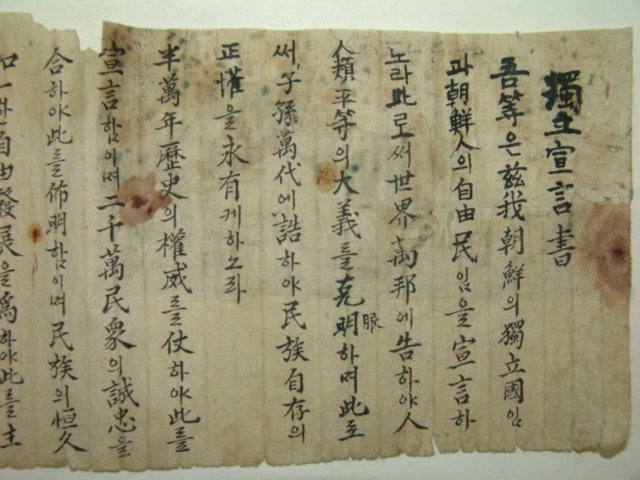 獨立宣言書
吾等은玆我朝鮮의獨立國임
과朝鮮人의自由民임을宣言하
노라此로써世界萬邦에告하야人
人類平等의大義를克明하며此로
眼
써子孫萬代에誥하야民族自存의
正權을永有케하노라
半萬年歷史의權威를仗하야此를
宣言함이며二千萬民衆의誠忠을
合하야此를佈明함이며民族의恒久
如一한自由發展을爲하야此를主